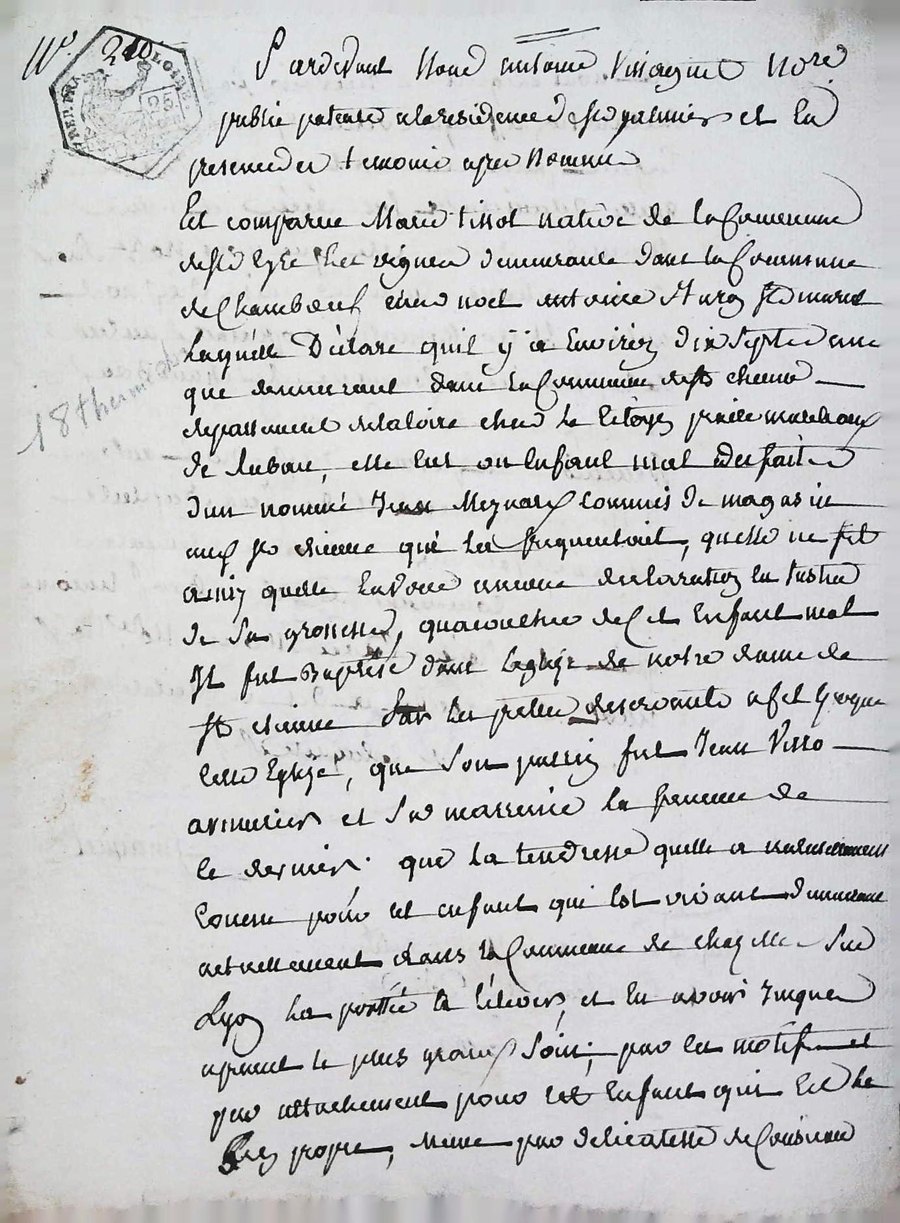 N.° 240
REP. FRA
LOIRE
25
18 thermidor
Pardevant Nous antoine Vissaguet No.re
public patenté a la residence de st galmier et en
presence des temoins apres Nommés
Est comparue Marie tissot native de la Commune
de st les vignes demeurante dans la Commune
de Chambœuf chez noel antoine son mari
Laquelle Déclare quil y a Environ dix sept ans
que demeurant dans la Commune de st chemond
departement de la loire chez le Citoyen marchand
de Ruban, elle eut un Enfant mal des faits
d'un nommé Jean Meynard Commis de magasin
aud st etienne qui la frequentoit, quelle ne fit
ainsy quelle L'avoue aucune declaration en Justice
de sa grossesse, quacouchée de Cet Enfant mal
Il fut Baptisé dans L'eglise de notre dame de
st etienne par les pretres desservants a Cet Epoque
cette Eglise, que Son parrin fut Jean
armurier et Sa marraine la femme de
ce dernier. que la tendresse quelle a naturellement
Conçue pour cet enfant qui Est vivant demeurant
actuellement dans la Commune de chazelle Sur
Lyon La portée a l'élever, et en avoir Jusqua
apresent le plus grand Soin; par ces motifs et
par attachement pour cet Enfant qui Est le
Sien propre, même par delicatesse de Conscience